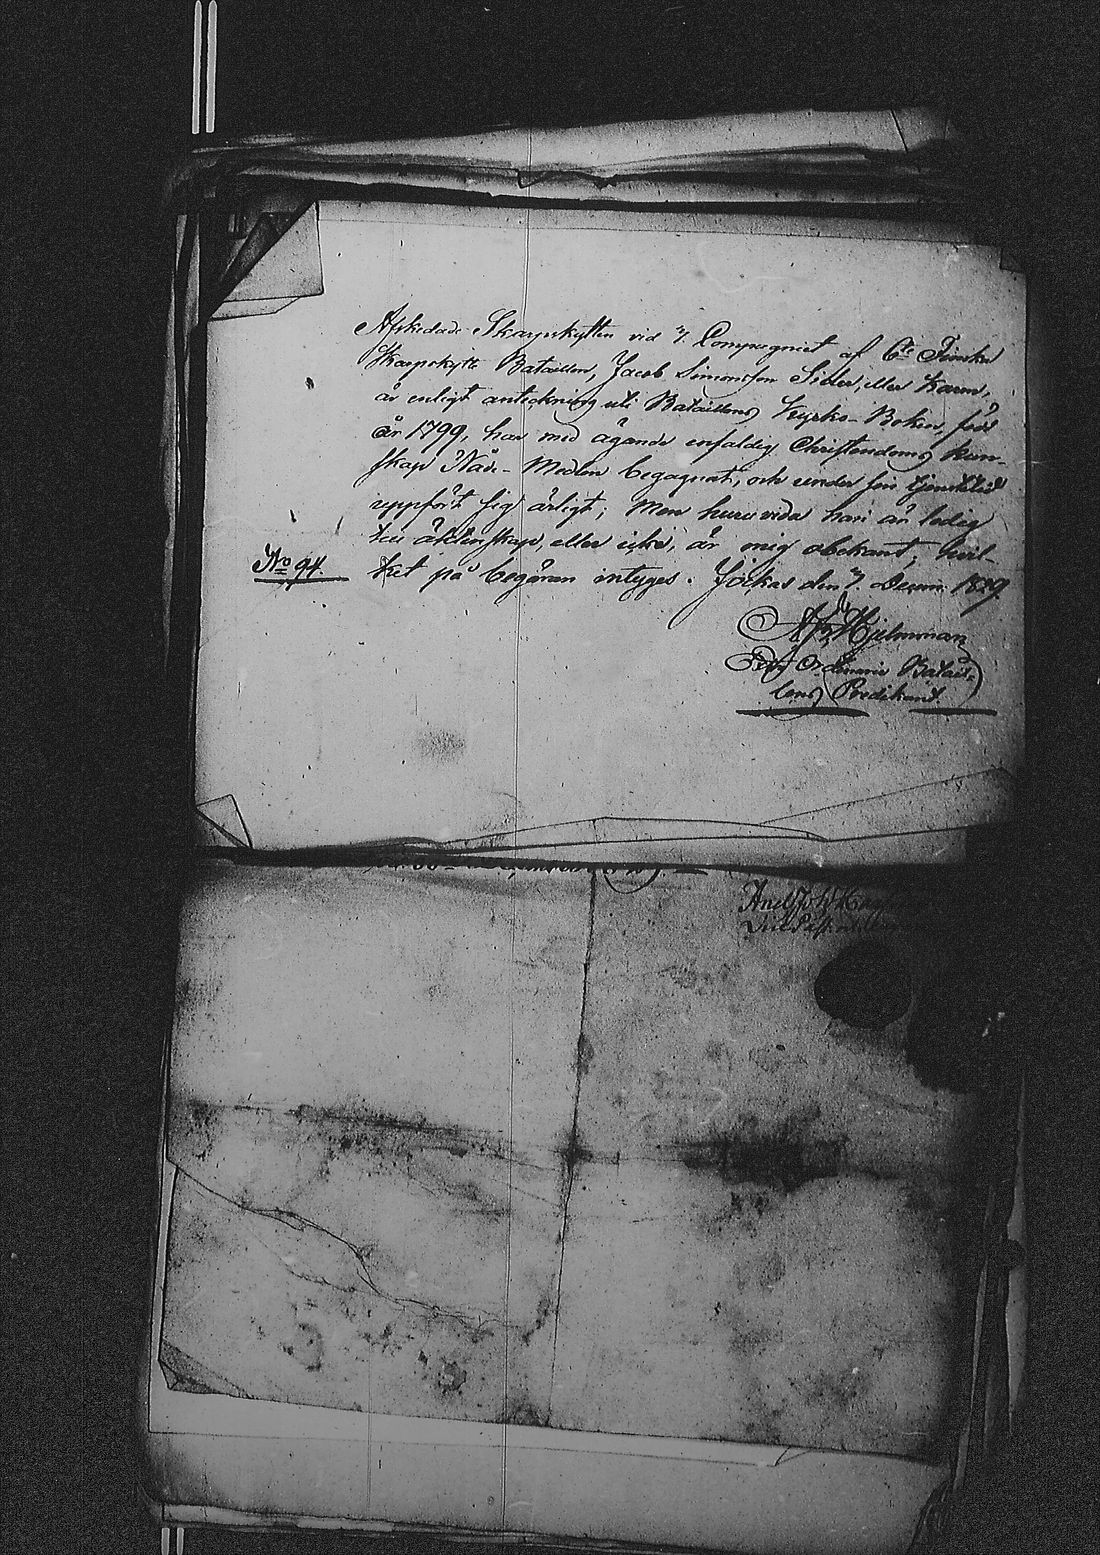 Afskedade Skarpskytten vid 7. Compagniet af 6te Finska
Skarpskytte Bataillon, Jacob Simonsson Sider, eller Karm,
är enligt anteckning uti Bataillons Kyrko-Boken, född
år 1799, har med ägande enfaldig Christendoms kun-
skap Nåde-Medlen begagnat, och under sin tjenstetid
uppfört sig ärligt; Men huruvida han är ledig
till äktenskap, eller icke, är mig obekant, hvil-
No 94. ket på begäran intygas. Jockas den 7. Decem: 1829.
Hjelmman
Ordinarie Batail-
lons Predikant.